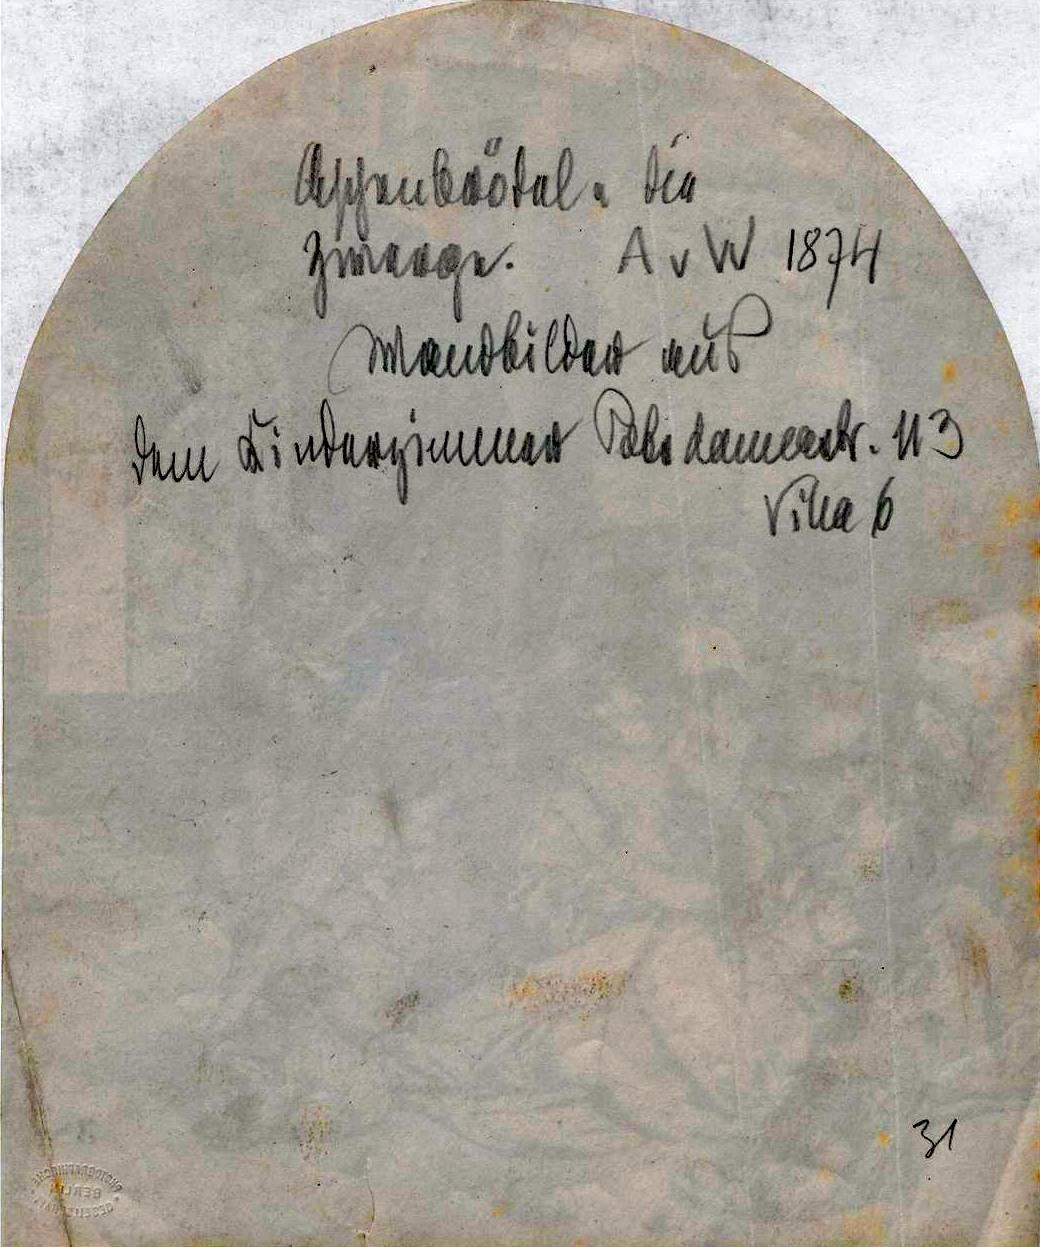 Aschenbrödel u die
Zwerge. A v W 1874
Wandbilder aus
dem Kinderzimmer Potsdamerstr. 113
Villa 6
31
PHOTOGRAPHISCHE
BERLIN
GESELLSCHAFT